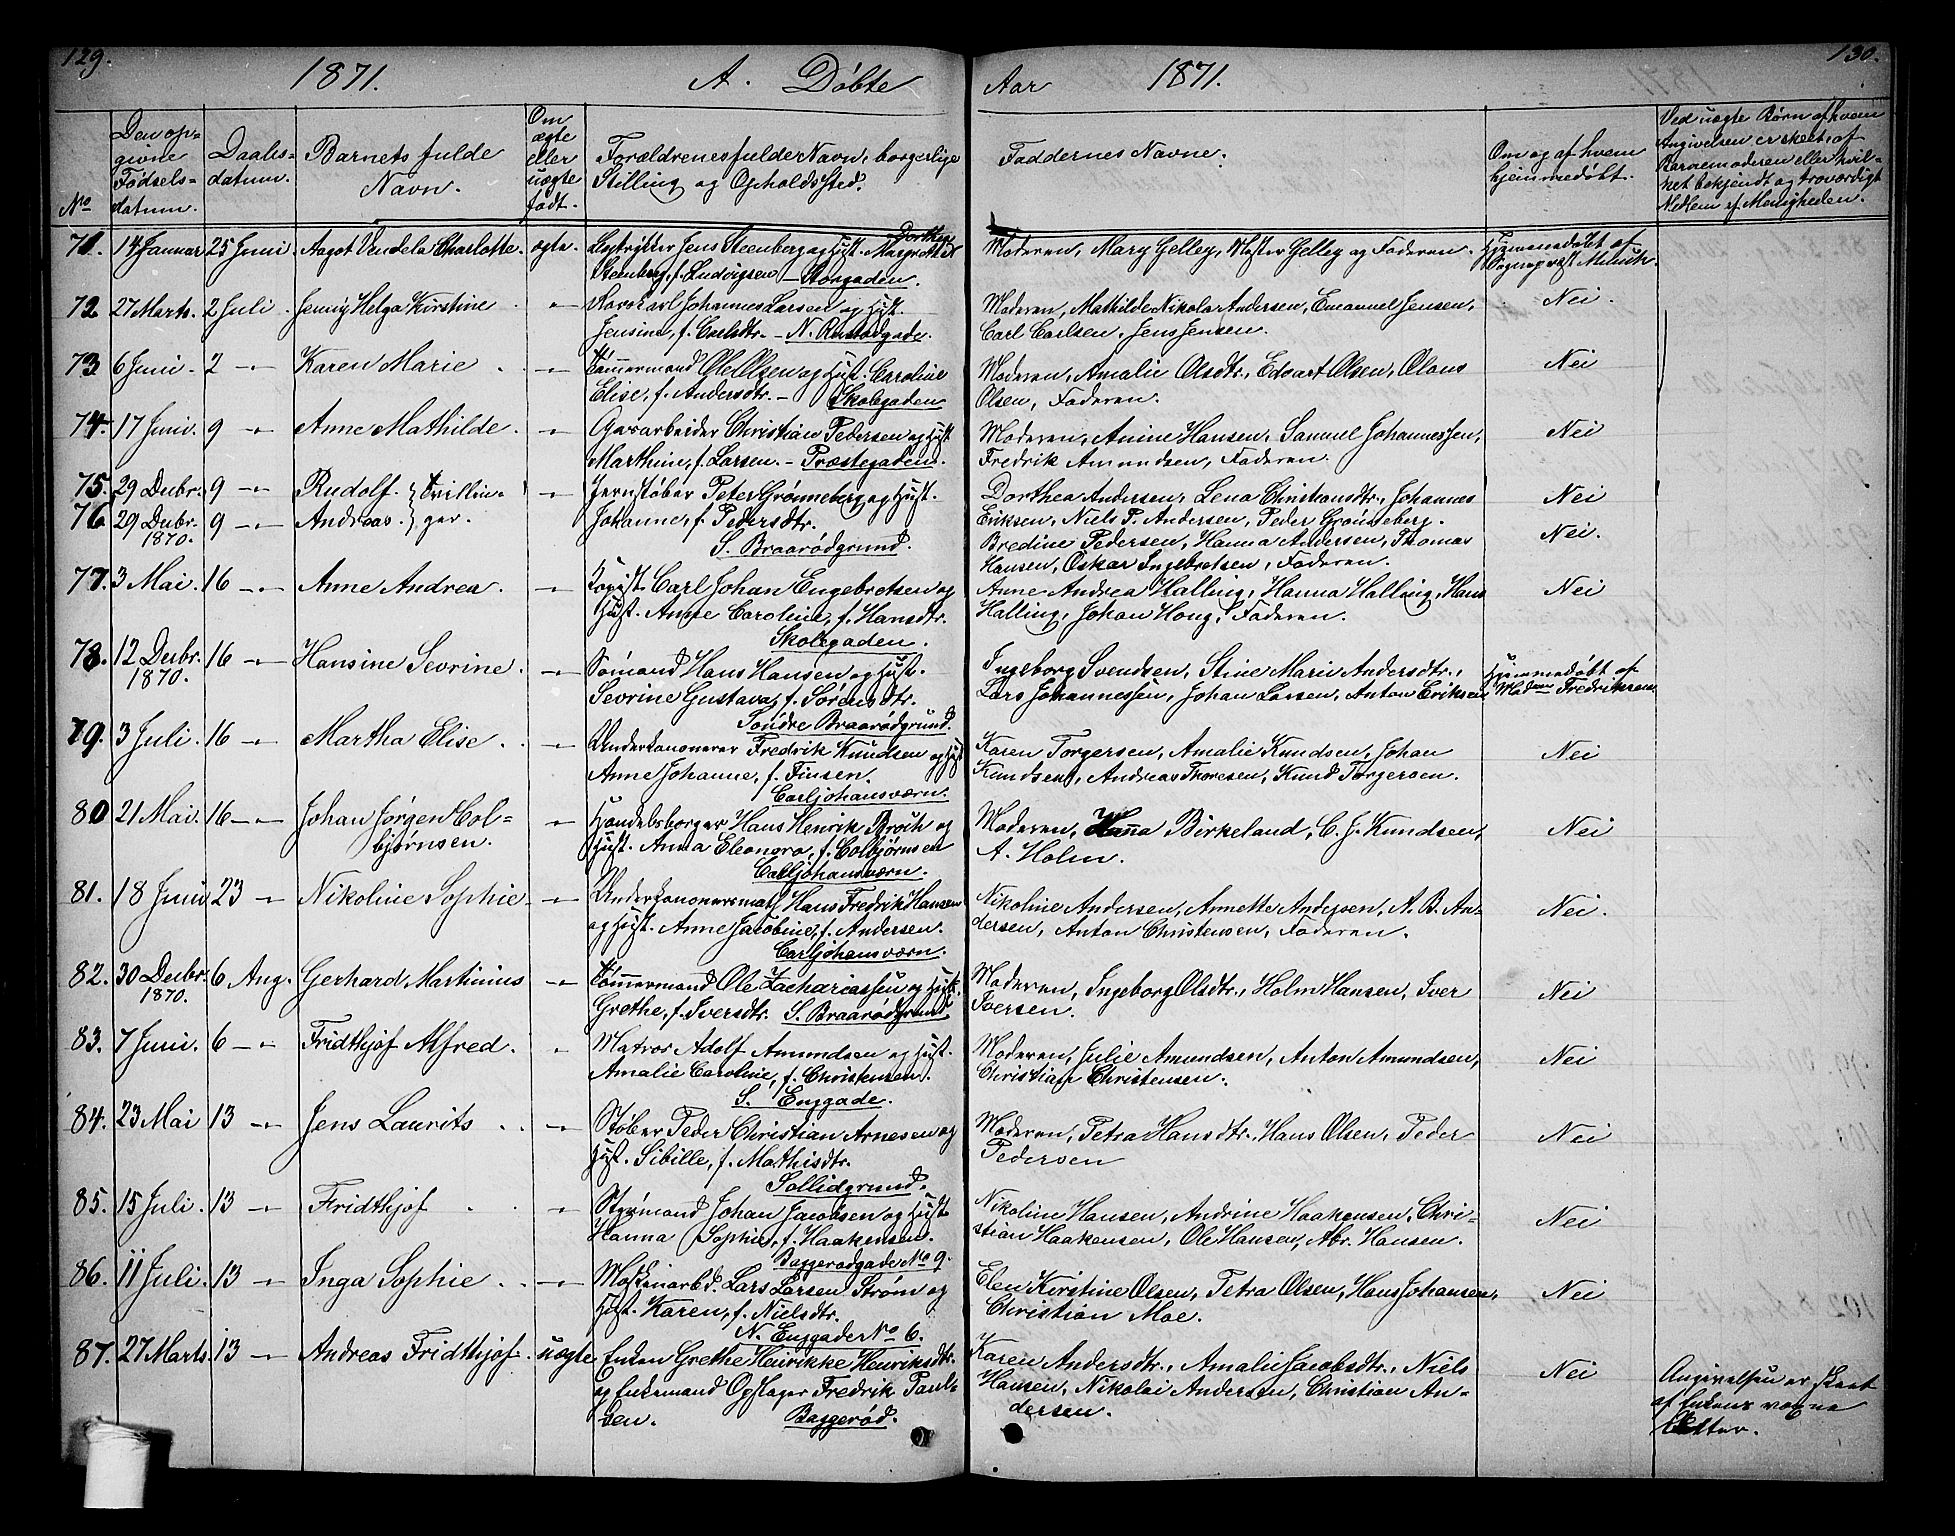 129.
1871.
A. Döbte
Aar
1871.
130.
No
Den op-
givne
Fødsels-
datum.
Daabs-
datum.
Barnets fulde
Navn.
Om
ægte
eller
uægte
født.
Forældrenes fulde Navn, borgerlige
Stilling og Opholdssted.
Faddernes Navne.
Om og af hvem
hjemmedøbt.
Ved uægte Børn af hvem
Angivelsen er skeet, af
Barnemoderen eller hvil-
ket bekjendt og troværdigt
Medlem af Menigheden.
71. 14 Januar 25 Juni Aagot Vendela Charlotte. ægte. Jens Steenberg og Hust. Margrethe Dorthea
Steenberg, f. Ludvigsen - Storgaden.
Moderen, Mary Gelley, Gelley og Faderen.
Hjemmedøbt af
72. 27 Marts. 2 Juli. Jenny Helga Kirstine -"- Johannes Larsen og Hust.
Jensine, f. Carlsdtr. - N.
Moderen, Mathilde Nikolai Andersen, Emanuel Jensen,
Carl Carlsen, Jens Jensen.
Nei.
73 6 Juni. 2 -"- Karen Marie -"- Tømmermand Ole Olsen og Hust. Caroline
Elise, f. Andersdtr. - Skolegaden
Moderen, Amalie Olsdtr., Edvart Olsen, Olaus
Olsen, Faderen.
Nei
74. 17 Juni. 9 -"- Anne Mathilde. -"- Gasarbeider Christian Pedersen og Hust
Marthine, f. Larsen. - Præstegaden.
Moderen, Anine Hansen, Samuel Johannessen,
Fredrik Amundsen, Faderen.
Nei
75. 29 Decbr. 9 -"- Rudolf. } Tvillin- -"- Jernstøber Peter Grønneberg og Hust.
76. 29 Decbr. 9 -"- Andreas. } ger. Johanne, f. Pedersdtr.
1870.
S. Braarødgrund.
Dorthea Andersen, Lena Christiansdtr., Johannes
Eriksen, Niels P. Andersen, Peder Grønneberg.
Bredine Pedersen, Hanna Andersen, Thomas
Hansen, Oskar Ingebretsen, Faderen.
Nei
Nei.
77. 3 Mai. 16 -"- Anne Andrea. -"- Carl Johan Engebretsen og
Hust. Anne Caroline, f. Hansdtr.
Skolegaden.
Anne Andrea Halling, Hanna Halling, Hans
Halling, Johan Houg, Faderen.
Nei
78. 12 Decbr. 16 -"- Hansine Sevrine. -"- Sømand Hans Hansen og Hust.
1870.
Sevrine Gustava, f. Sørensdtr.
Søndre Braarødgrund.
Ingeborg Svendsen, Stine Marie Andersdtr.,
Lars Johannessen, Johan Larsen, Anton Eriksen
Hjemmedøbt af
Madam Fredriksen
79. 3 Juli. 16 -"- Martha Elise. -"- Underkanoneer Fredrik Knudsen og Hust
Anne Johanne, f. Finsen.
Carljohansværn.
Karen Torgersen, Amalie Knudsen, Johan
Knudsen, Andreas Thoresen, Knud Torgersen.
Nei
80 21 Mai. 16 -"- Johan Jørgen Col-
bjørnsen.
-"- Handelsborger Hans Henrik Broch og
Hust. Anna Eleonora, f. Colbjørnsen
Carljohansværn.
Moderen, Hanna Birkeland, C. J. Knudsen,
A. Holm.
Nei
81. 18 Juni 23 -"- Nikoline Sophie -"- Underkanoneersmath Hans Fredrik Hansen
og Hust. Anne Jacobine, f. Andersen.
Carljohansværn.
Nikoline Andersen, Annette Andersen, A. B. An-
dersen, Anton Christensen, Faderen.
Nei.
82. 30 Decbr. 6 Aug. Gerhard Martinius -"- Tømmermand Ole Zachariassen og Hust.
1870.
Grethe, f. Iversdtr. S. Braarødgrund
Moderen, Ingeborg Olsdtr., Holm Hansen, Iver
Iversen.
Nei
83. 7 Juni. 6 -"- Fridthjof Alfred. " Matros Adolf Amundsen og Hust.
Amalie Caroline, f. Christensen.
S. Enggade.
Moderen, Julie Amundsen, Anton Amundsen,
Christian Christensen.
Nei
84. 23 Mai 13 -"- Jens Laurits -"- Støber Peder Christian Arnesen og
Hust. Sibille, f. Mathisdtr.
Sollidgrund.
Moderen, Petra Hansdtr., Hans Olsen, Peder
Pedersen
Nei
85. 15 Juli. 13 -"- Fridthjof " Styrmand Johan Jacobsen og Hust
Hanna Sophie, f. Haakensen.
Baggerødgade No 9.
Nikoline Hansen, Andrine Haakensen, Chri-
stian Haakensen, Ole Hansen, Abr. Hansen.
Nei
86. 11 Juli. 13 -"- Inga Sophie -"- Maskinarbd. Lars Larsen Strøm og
Hust. Karen, f. Nielsdtr.
N. Enggade No 6.
Elen Kirstine Olsen, Petra Olsen, Hans Johansen,
Christian Moe.
Nei
87. 27 Marts. 13 -"- Andreas Fridthjof. uægte Enken Grethe Henrikke Henriksdtr.
og Enkemand Opslager Fredrik Paul-
sen. Baggerød.
Karen Andersdtr., Amalie Jacobsdtr., Niels
Hansen, Nikolai Andersen, Christian An-
dersen.
Nei
Angivelsen er skeet
af Enkens voxne
Datter.